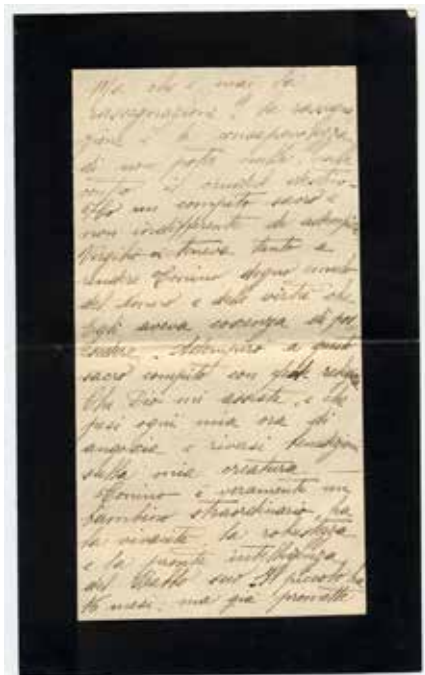 Ma che è mai la
rassegnazione? La rassegna
zione è la consapevolezza
di non poter nulla, nulla
contro il crudel destino.
Ho un compito sacro e
non indifferente da adempiere
Virgilio ci teneva tanto a
rendere Tonino degno
del nome e delle virtù che
egli aveva coscienza di pos
sedere. Adempirò a questo
sacro compito con
Che Dio mi assista, e che
ogni mia ora di
angoscia e riversi benedizioni
sulla mia creatura —
Tonino è veramente un
bambino straordinario, ha
la robustezza
e la pronta intelligenza
del suo. Il piccolo ha
mesi, ma già promette